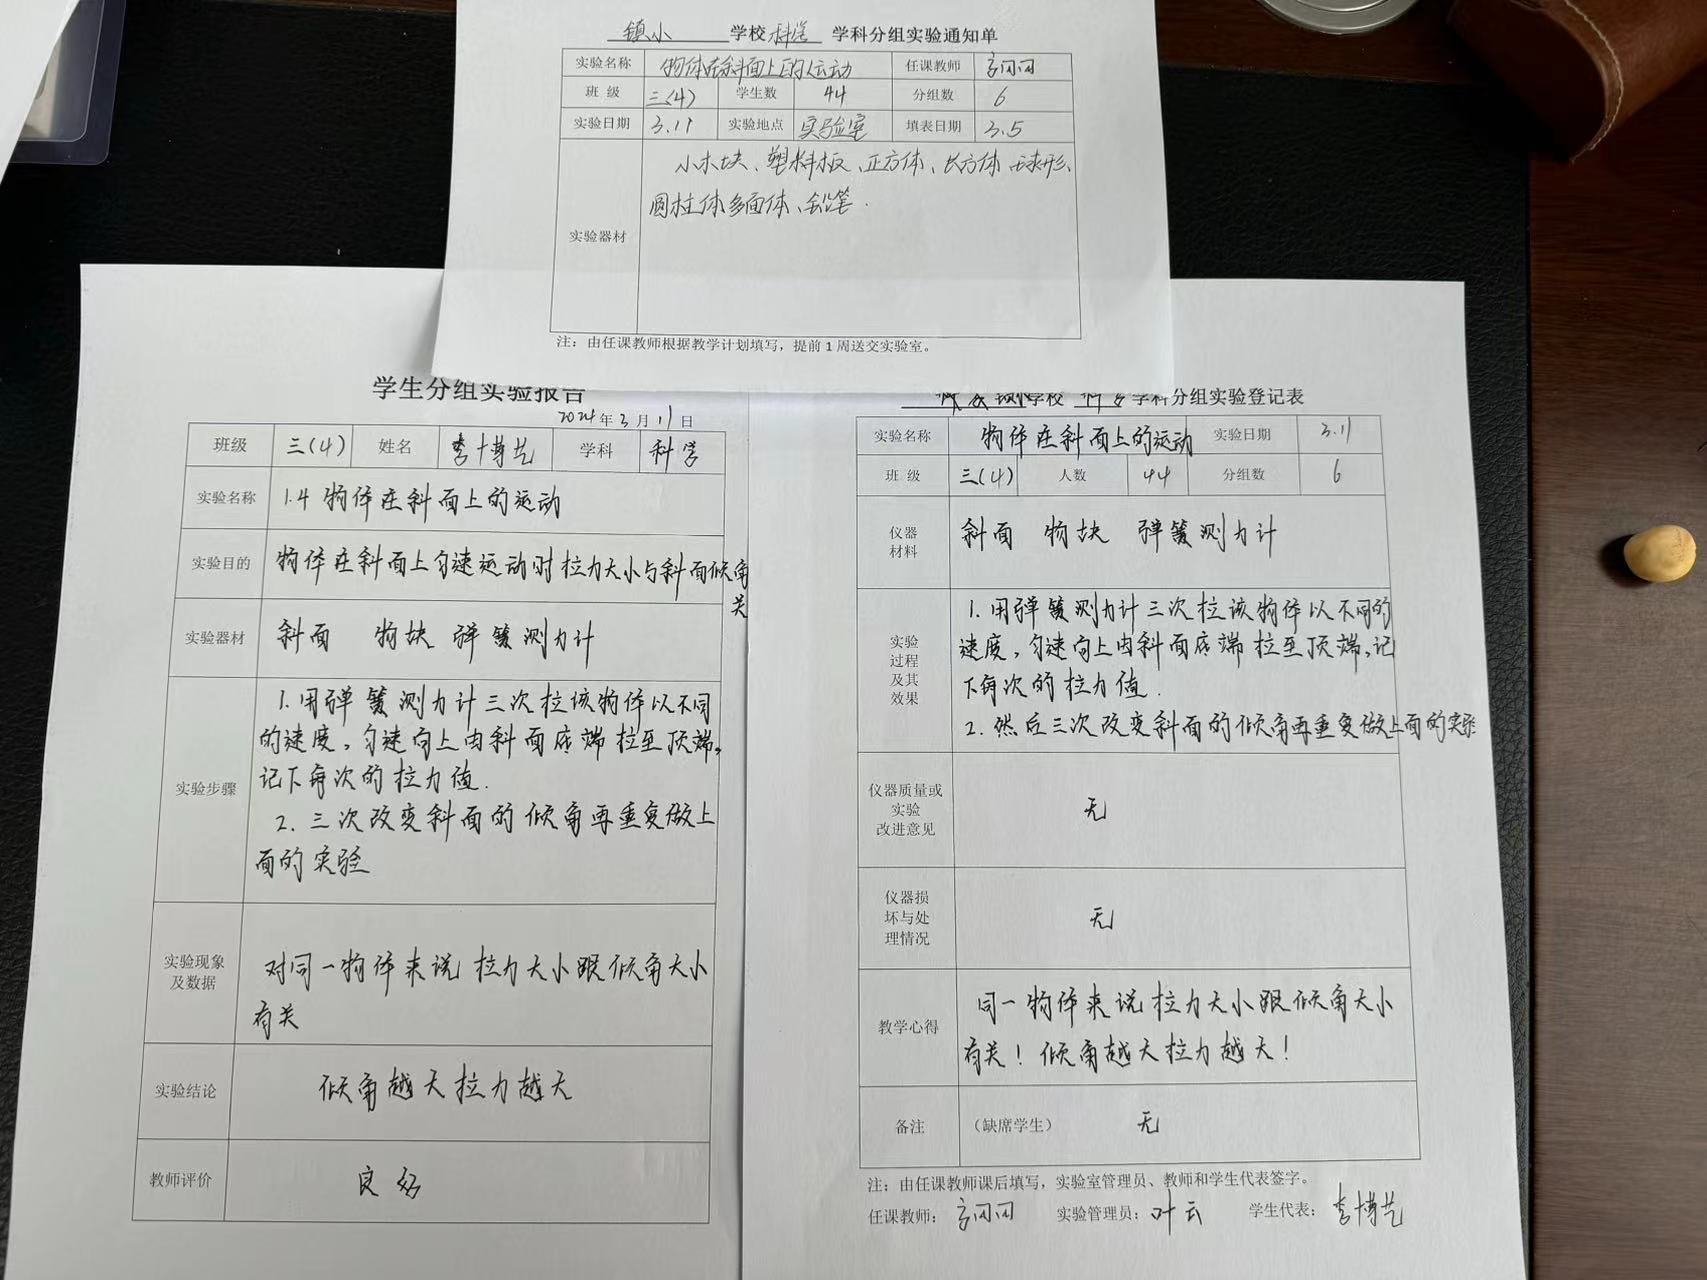 镇小 学校 科学 学科分组实验通知单
实验名称 物体在斜面上的运动 任课教师
班 级 三(4) 学生数 44 分组数 6
实验日期 3.11 实验地点 实验室 填表日期 3.5
小木块、塑料板、正方体、长方体、球形、
圆柱体多面体、铅笔.
实验器材
注：由任课教师根据教学计划填写，提前1周送交实验室。
学生分组实验报告
2024年3月11日
班级 三(4) 姓名 李博艺 学科 科学
实验名称 1.4 物体在斜面上的运动
实验目的 物体在斜面上匀速运动时拉力大小与斜面倾角
关
实验器材 斜面 物块 弹簧测力计
1.用弹簧测力计三次拉该物体以不同
的速度，匀速向上由斜面底端拉至顶端，
记下每次的拉力值.
实验步骤
2.三次改变斜面的倾角再重复做上
面的实验
实验现象
及数据
对同一物体来说拉力大小跟倾角大小
有关
实验结论 倾角越大拉力越大
教师评价 良好
学校 科学 学科分组实验登记表
实验名称 物体在斜面上的运动 实验日期 3.11
班 级 三(4) 人数 44 分组数 6
仪器
材料
斜面 物块 弹簧测力计
实验
过程
及其
效果
1.用弹簧测力计三次拉该物体以不同的
速度，匀速向上由斜面底端拉至顶端，记
下每次的拉力值.
2.然后三次改变斜面的倾角再重复做上面的实验
仪器质量或
实验
改进意见
无
仪器损
坏与处
理情况
无
教学心得
同一物体来说拉力大小跟倾角大小
有关！倾角越大拉力越大！
备注 （缺席学生） 无
注：由任课教师课后填写，实验室管理员、教师和学生代表签字。
任课教师： 实验管理员：叶云 学生代表：李博艺